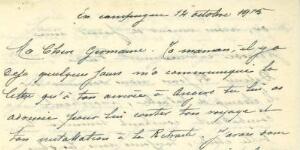 En campagne 14 octobre 1915
Ma Chère Germaine. Ta maman, il y a
déjà quelques jours m'a communiqué la
lettre qu'à ton arrivée à Angers tu lui as
adressée pour lui conter ton voyage et
ton installation à la Retraite. J'avais